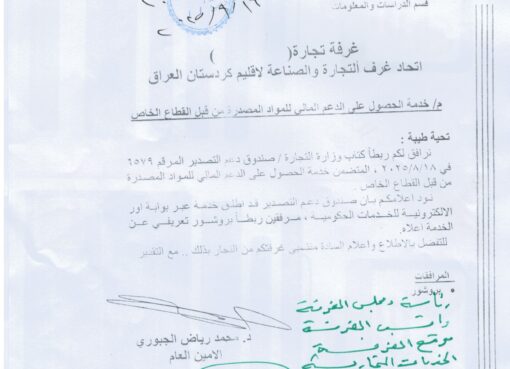 قسم الدراسات والمعلومات
غرفة تجارة( )
اتحاد غرف التجارة والصناعة لاقليم كردستان العراق
م/ خدمة الحصول على الدعم المالي للمواد المصدرة من قبل القطاع الخاص
تحية طيبة :
نرافق لكم ربطاً كتاب وزارة التجارة / صندوق دعم التصدير المرقم ٦٥٧٩
في ٢٠٢٥/٨/١٨ ، المتضمن خدمة الحصول على الدعم المالي للمواد المصدرة
من قبل القطاع الخاص .
نود اعلامكم بان صندوق دعم التصدير قد اطلق خدمة عبر بوابة اور
الالكترونية للخدمات الحكومية ، مرفقين ربطاً بروشور تعريفي عن
الخدمة اعلاه.
للتفضل بالاطلاع واعلام السادة منتسبي غرفتكم من التجار بذلك .. مع التقدير
المرافقات
بروشور
رئاسة ومجلس الغرفة
الغرفة
موقع الغرفة
الخدمات التجارية
د. محمد رياض الجبوري
الامين العام